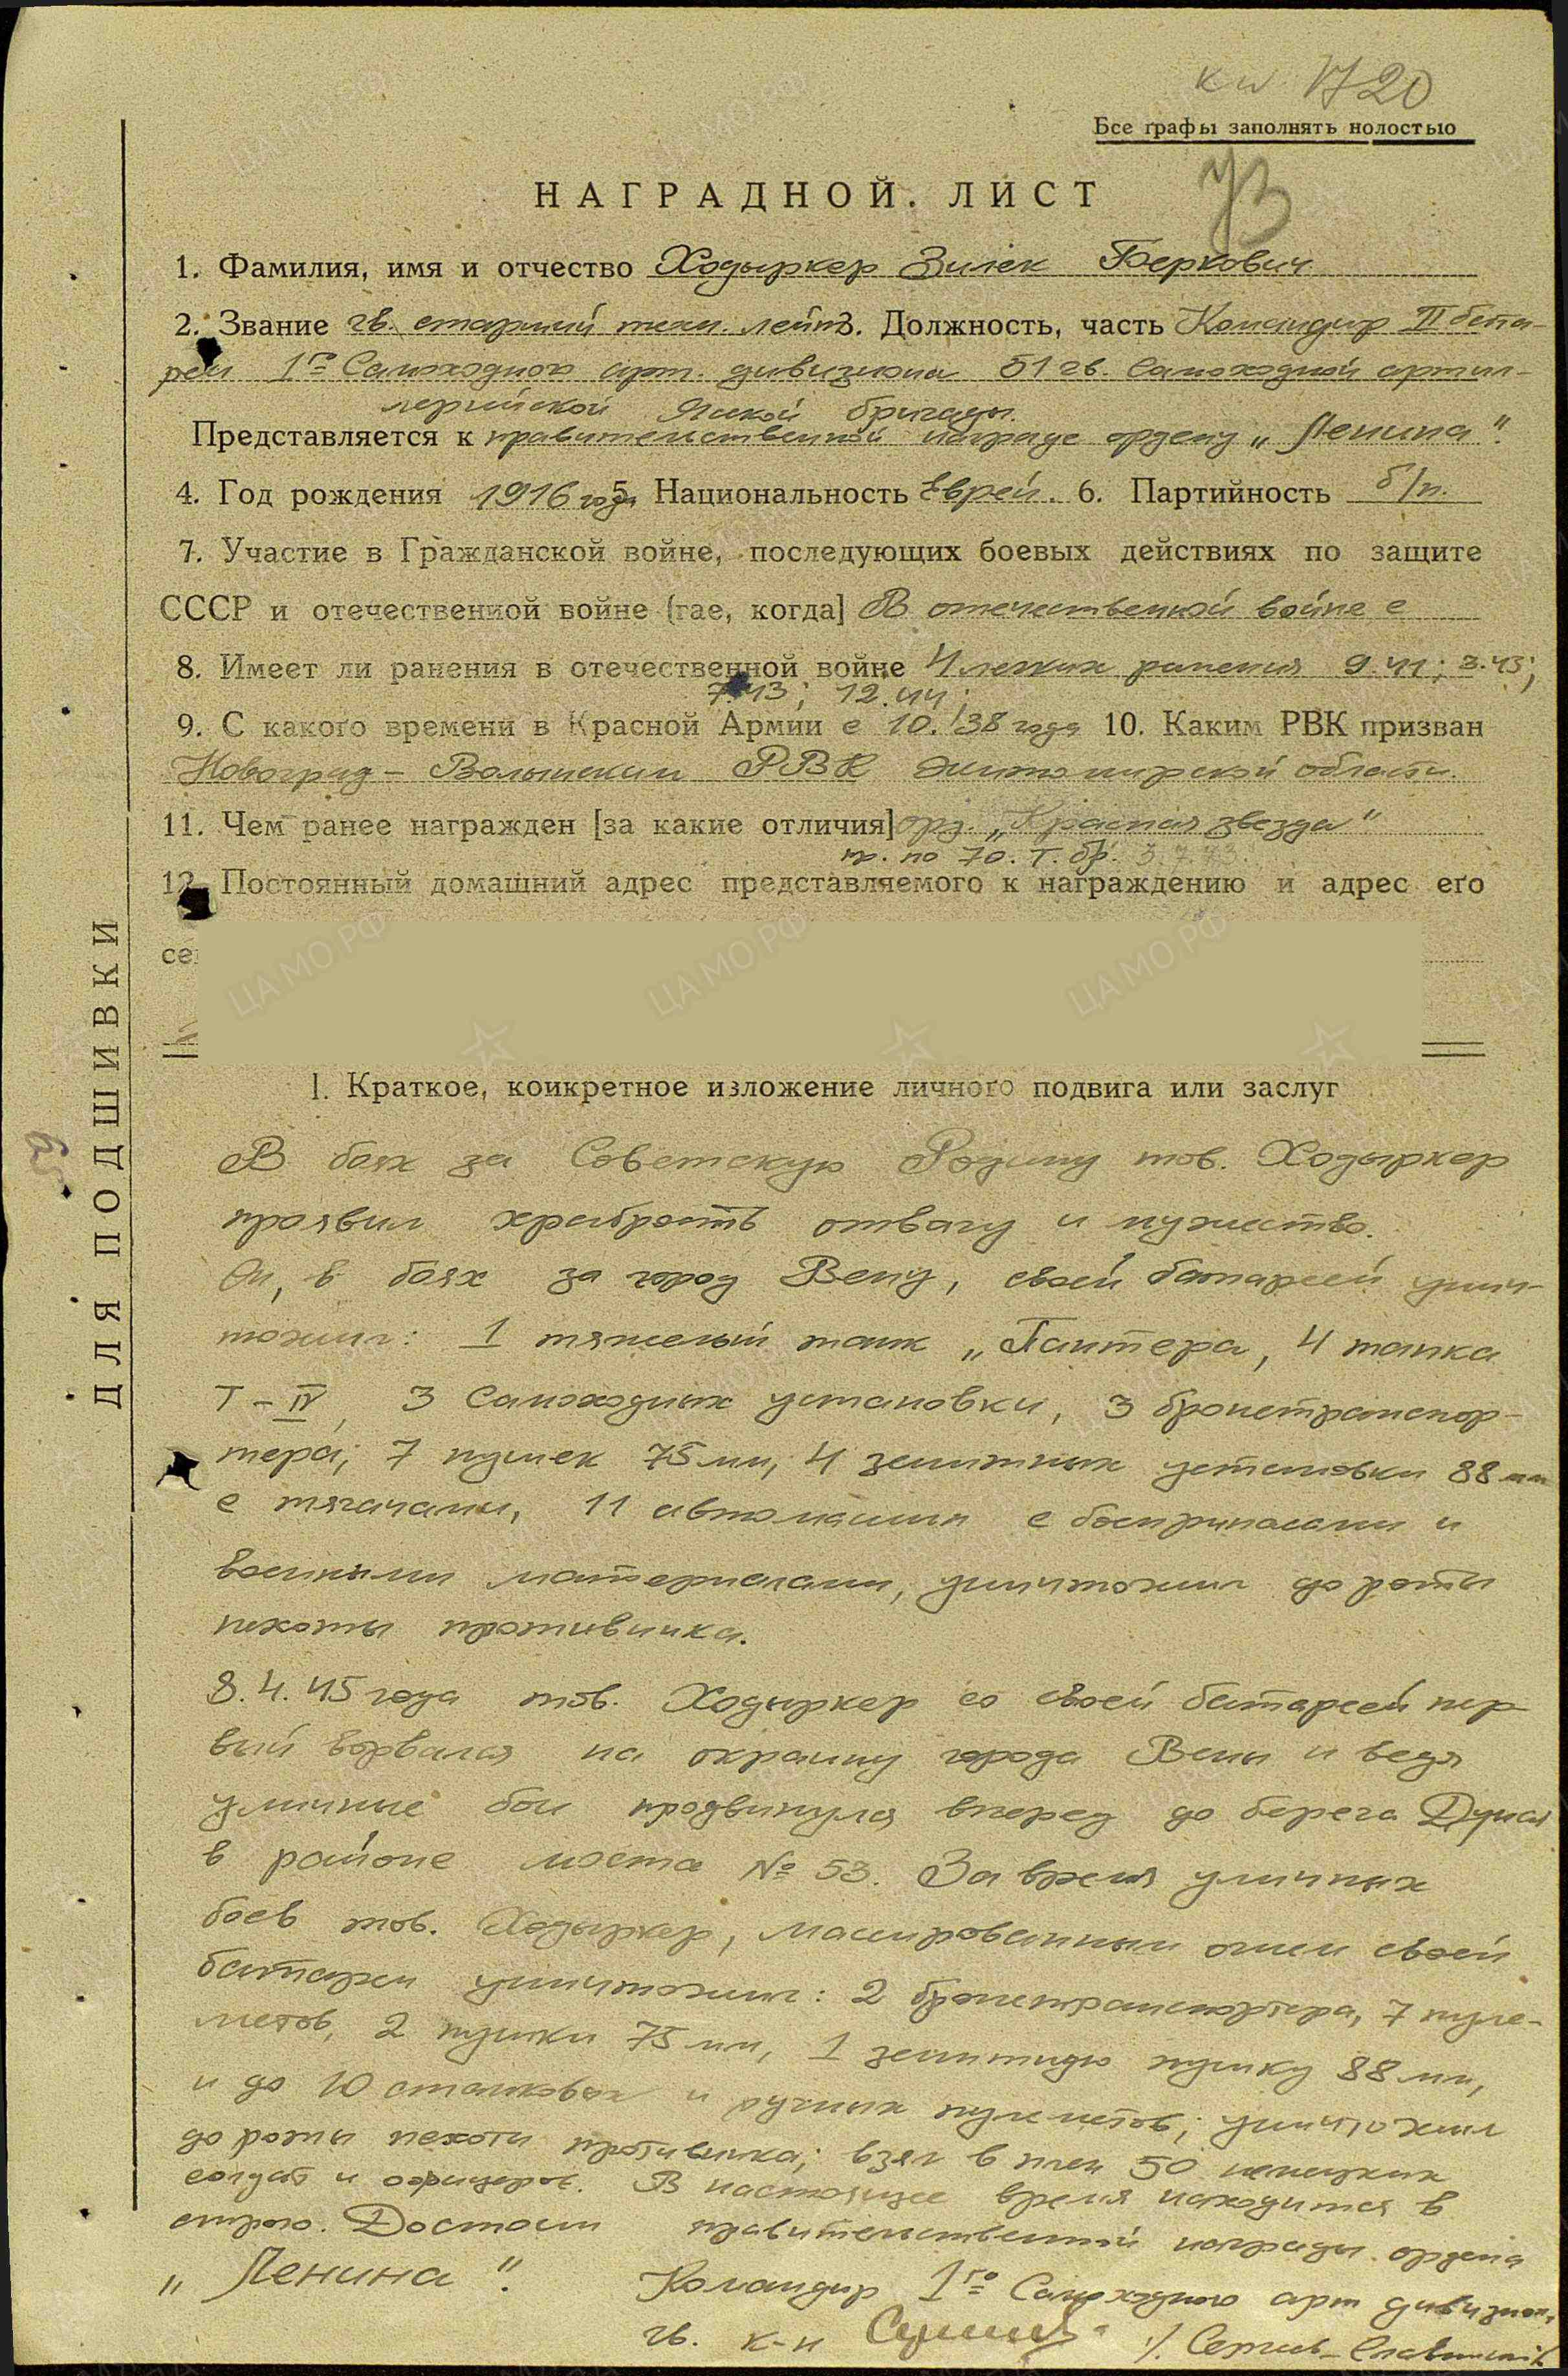 1720
Все графы заполнять нолостью
УЗ
НАГРАДНОЙ. ЛИСТ
1. Фамилия, имя и отчество Ходыркер Зилек Беркович
2. Звание гв. старший техн. лейт 3. Должность, часть Командир II бата-
реи 1го Самоходного арт. дивизиона 51 гв. Самоходной артил-
лерийской Ясской бригады.
Представляется к правительственной награде ордену „Ленина".
4. Год рождения 1916 года 5. Национальность Еврей. 6. Партийность б/п.
7. Участие в Гражданской войне, последующих боевых действиях по защите
СССР и отечественной войне (гае, когда] В отечественной войне с
8. Имеет ли ранения в отечественной войне 4 легких ранения 9.41; 3.43;
7.43; 12.44;
9. С какого времени в Красной Армии с 10. 38 года 10. Каким РВК призван
Новоград-Волынским РВК Житомирской области.
11. Чем ранее награжден [за какие отличия] орд. „Красная звезда"
пр. по 70. т. бр. 3.7.43.
12. Постоянный домашний адрес представляемого к награждению и адрес его
се
I. Краткое, коикретное изложение личного подвига или заслуг
В боях за Советскую Родину тов. Ходыркер
проявил храбрость отвагу и мужество.
Он, в боях за город Вену, своей батареей унич-
тожил: 1 тяжелый танк „Пантера, 4 танка
Т-IV, 3 самоходных установки, 3 бронетранспор-
тера; 7 пушек 75 мм, 4 зенитных установки 88 мм
с тягачами, 11 автомашин с боеприпасами и
военными материалами, уничтожил до роты
пехоты противника.
8.4.45 года тов. Ходыркер со своей батареей пер-
вый ворвался на окраину города Вены и ведя
уличные бои продвинулся вперед до берега Дуная
в районе моста № 53. За время уличных
боев тов. Ходыркер, массированным огнем своей
батареи уничтожил: 2 бронетранспортера, 7 пуле-
метов, 2 пушки 75 мм, 1 зенитную пушку 88 мм,
и до 10 станковых и ручных пулеметов; уничтожил
до роты пехоты противника; взял в плен 50 немецких
солдат и офицеров. В настоящее время находится в
строю. Достоин правительственной награды ордена
„Ленина".
Командир 1го Самоходного арт дивизион.
гв. к-н /. Сергеев-Славинский/
ДЛЯ ПОДШИВКИ
ЦА МО РФ